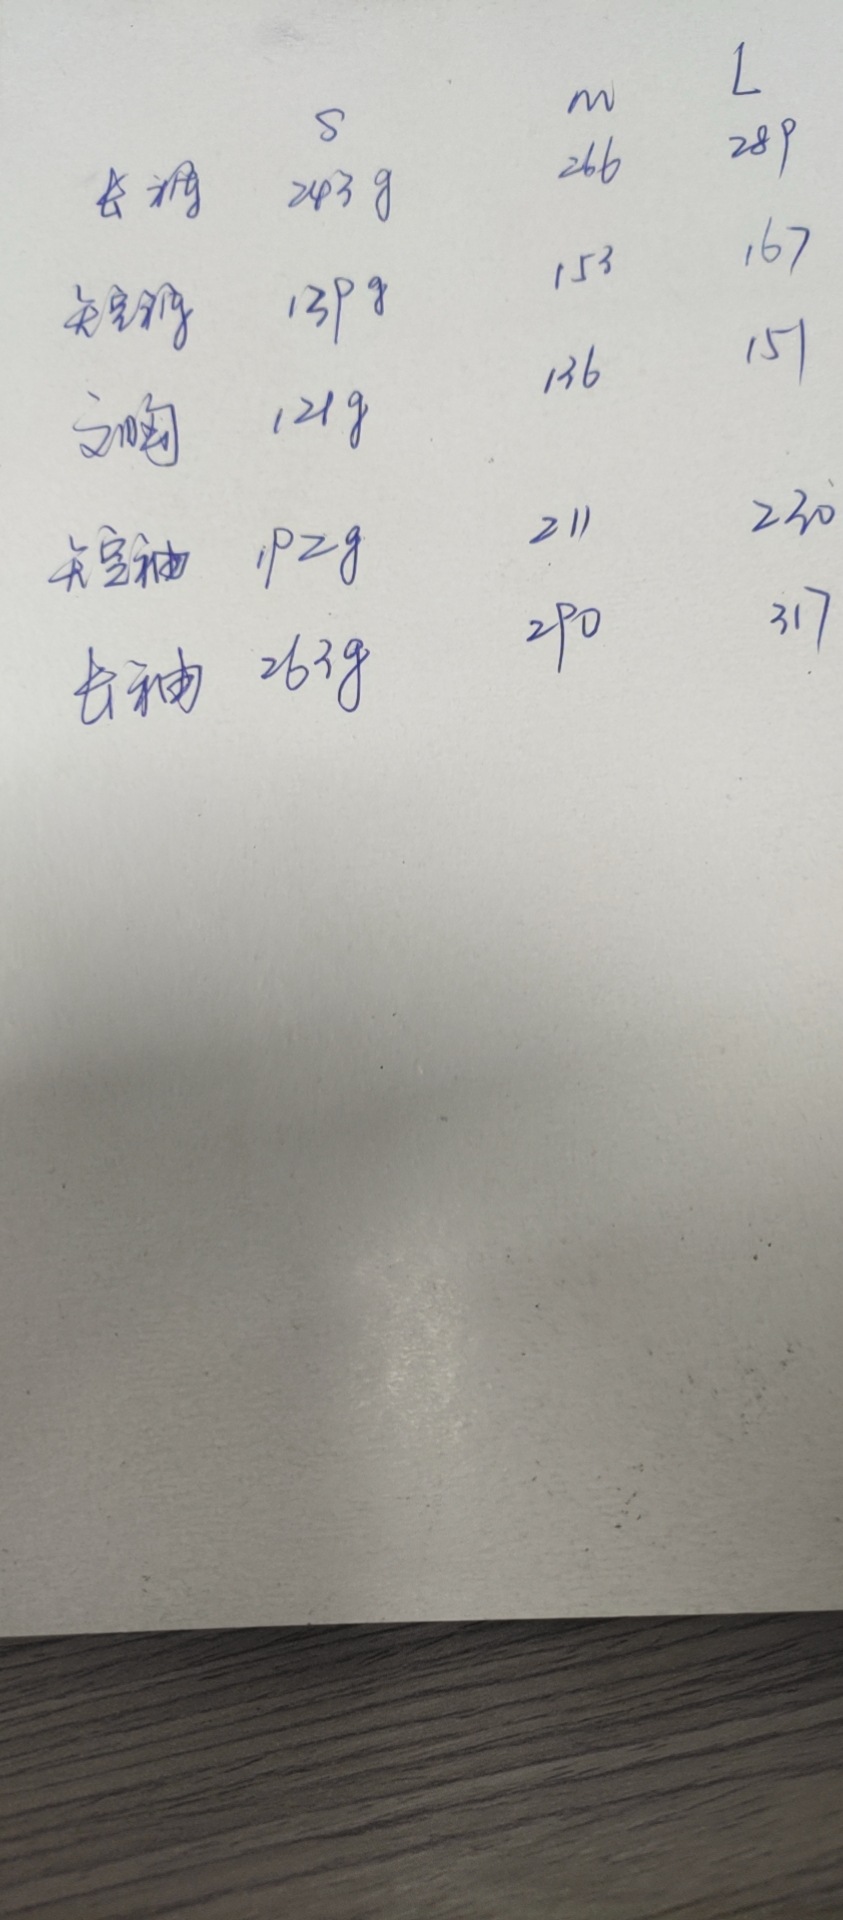 S m L
长裤 243g 266 289
短裤 139g 153 167
文胸 121g 136 151
短袖 192g 211 230
长袖 263g 290 317